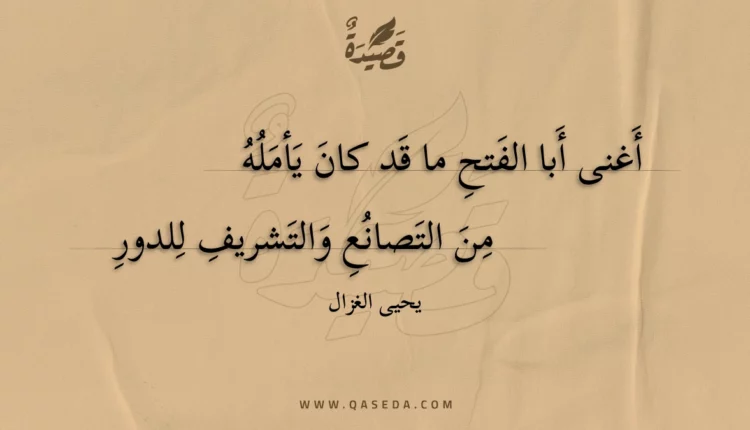 قَصِيْدَةٌ
أَغنى أَبا الفَتحِ ما قَد كانَ يَأمَلُهُ
مِنَ التَصانُعِ وَالتَشريفِ لِلدورِ
يحيى الغزال
WWW.QASEDA.COM